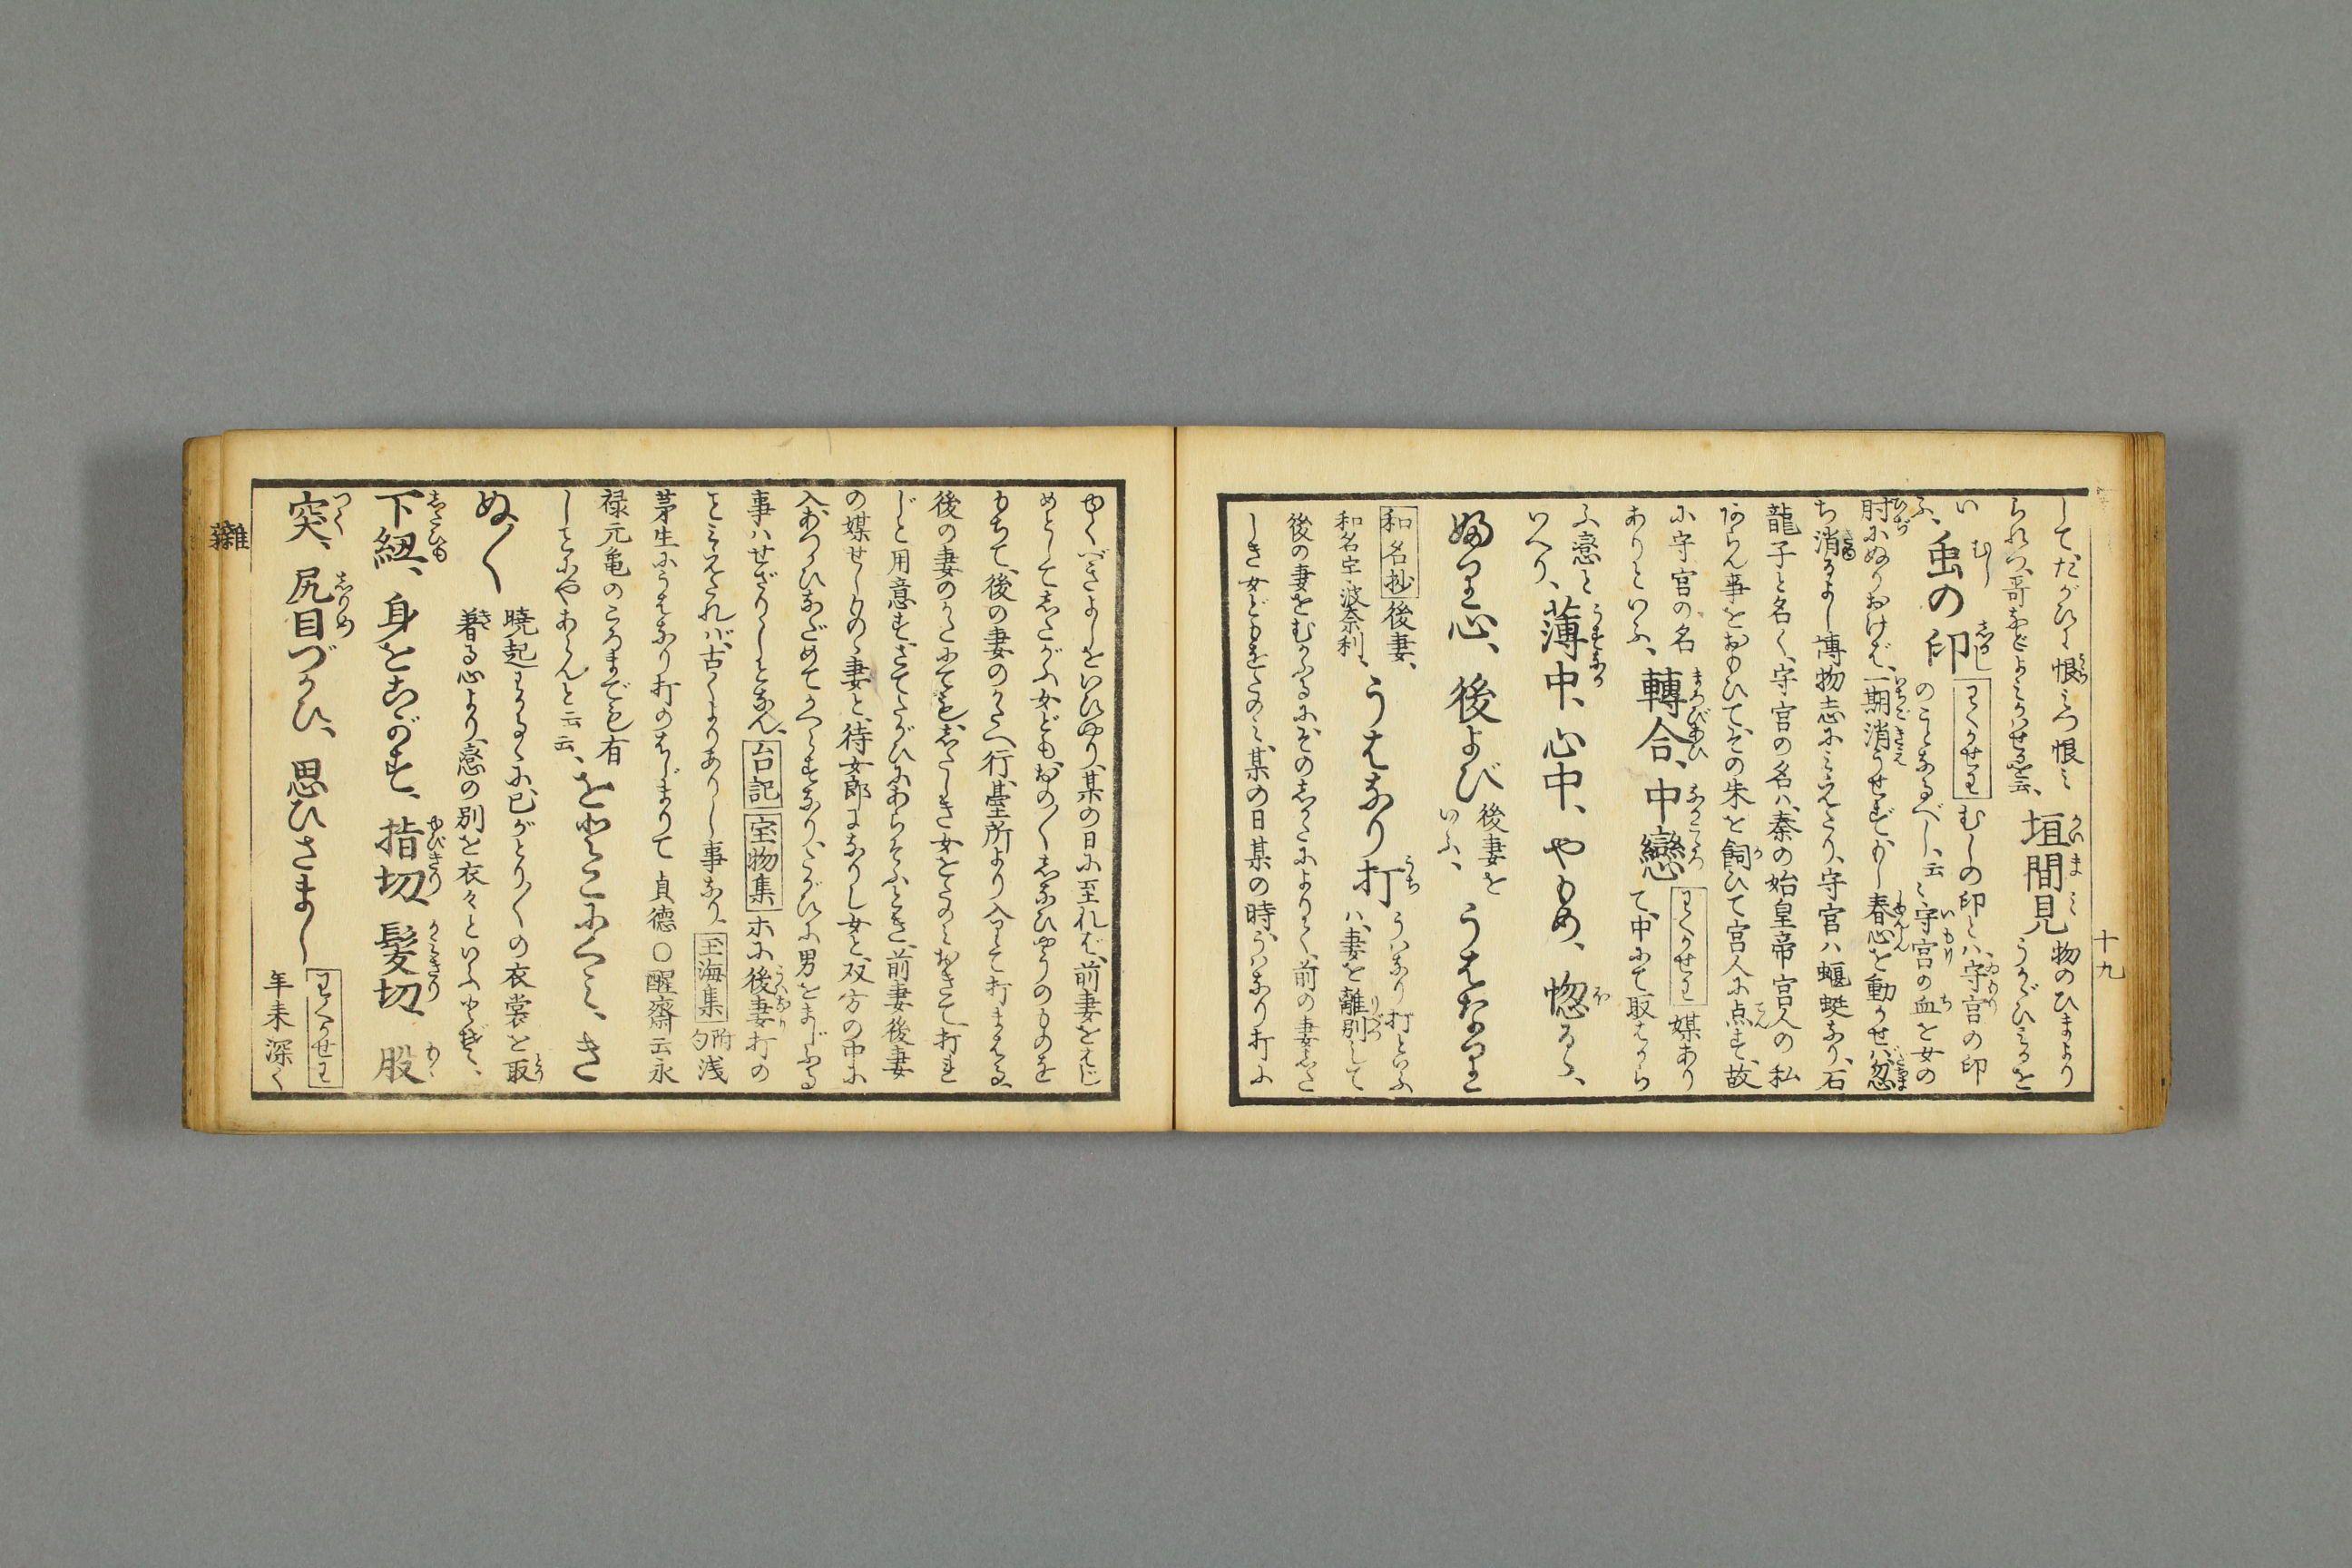 十九
して、たがひに恨みつ恨み
られつ、哥などよみかはせるを云、
垣間見
物のひまより
うかゞひみるを
い
ふ、
虫の印
わくかせわ
むしの印とハ、守宮の印
のことなるべし、云々守宮の血を女の
肘にぬりおけば、一期消うせず、もし春心を動かせバ、忽
ち消るよし博物志にみえたり、守宮ハ蝘蜓なり、石
龍子と名く、守宮の名ハ、秦の始皇帝宮人の私
あらん事をおもひて、その朱を飼ひて宮人に点ず、故
に守宮の名
ありといふ、
轉合、中戀
わくかせわ
媒あり
て、中にて取はから
ふ戀と
いへり、
薄中、心中、やもめ、惚るゝ、
婦り心、後よび
後妻を
いふ、
うはなり
和名抄
後妻、
和名宇波奈利、
うはなり打
うはなり打といふ
ハ、妻を離別して
後の妻をむかふるに、その志たによりて、前の妻志た
しき女どもをたのみ、某の日某の時、うはなり打に
ゆくべきよしをいひやり、某の日に至れば、前妻をはじ
めとして志たがふ女ども、おの〳〵志なひやうのものを
もちて、後の妻のかたへ行、臺所より入りて打まはる、
後の妻のかたにても、志たしき女をたのみおきて、打れ
じと用意す、さてたがひにあらそふとき、前妻後妻
の媒せしものゝ妻と、待女郎になりし女と、双方の中に
入、あつかひなだめてかへらすなり、たがひに男をまじふる
事ハせざりしとなん、
台記
宝物集
木に後妻打の
ことみえたれバ、古くよりありし事なり、
玉海集
附
句
浅
茅生にうはなり打のはじまりて 貞徳 〇醒齋云永
禄元亀のころまでも有
しことにやあらんと云云、
をとこにくみ、き
ぬ〳〵
暁起わかるゝに、己がとり〴〵の衣裳を取
着る心より、戀の別を衣々といふとぞ、
下紐、身をこがす、指切、髪切、股
突、尻目づかひ、思ひさまし
わくかせわ
年来深く
雜